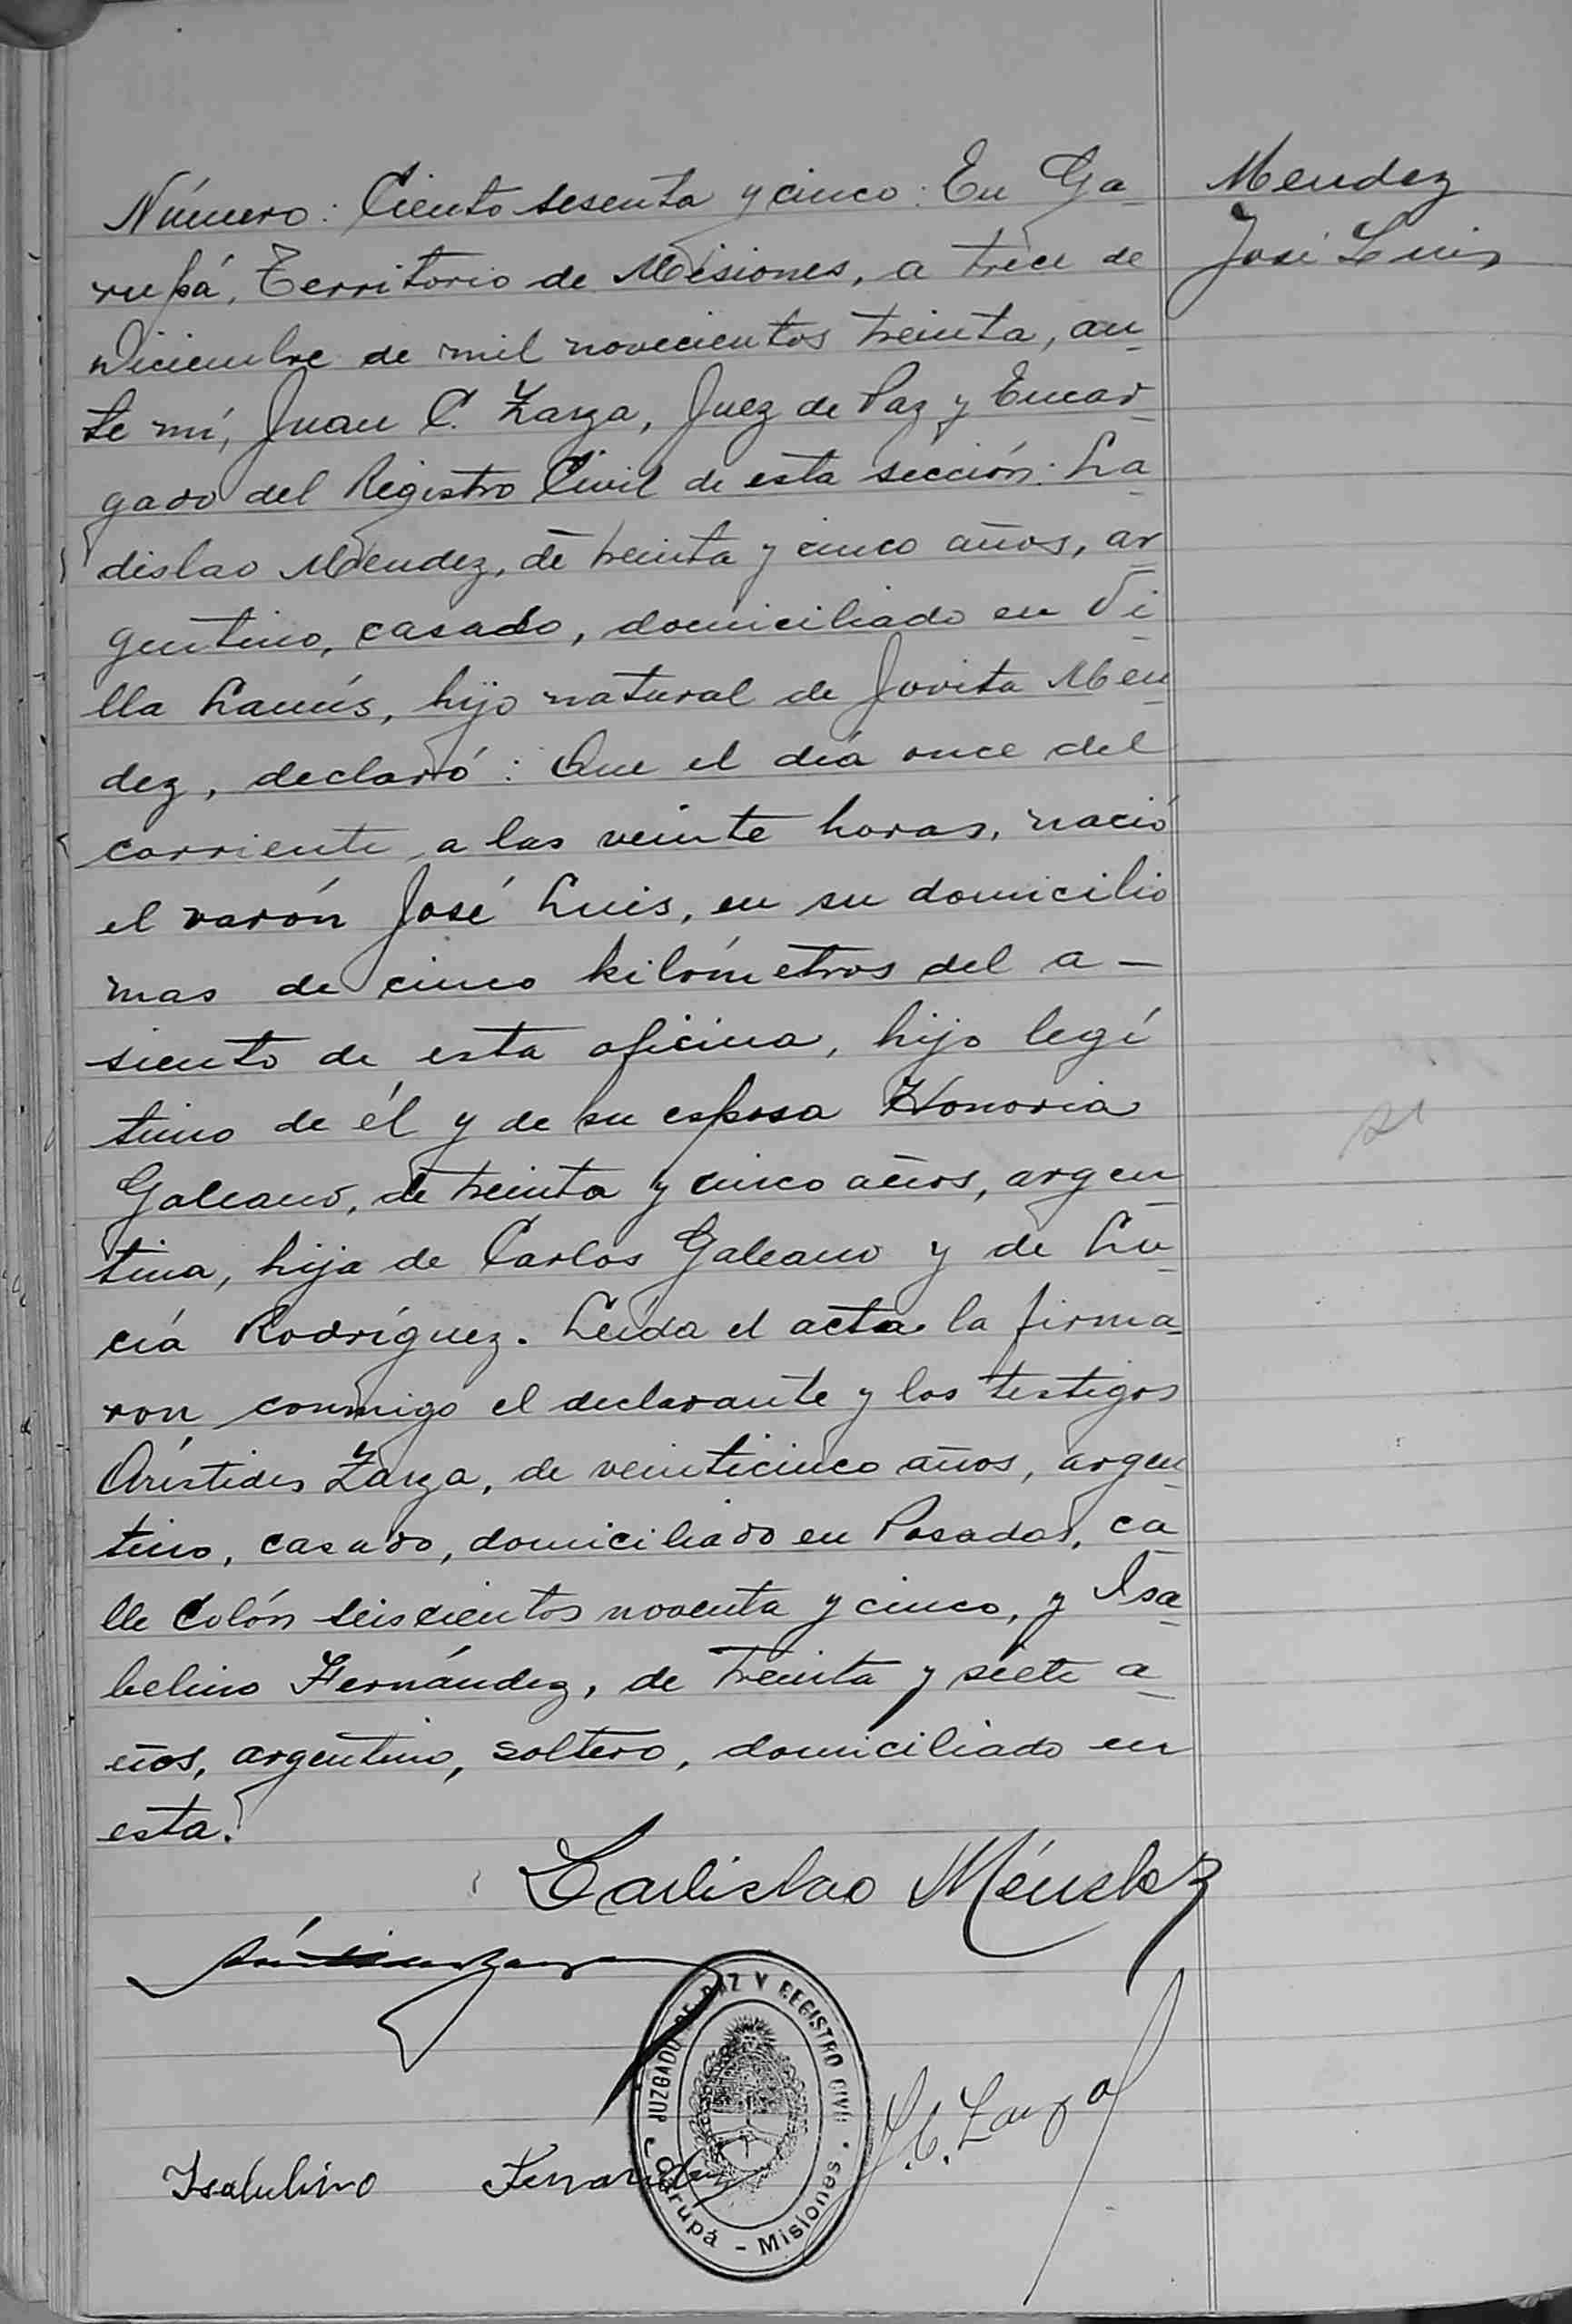 Mendez
José Luis
Número: Ciento sesenta y cinco: En Ga-
rupá, Territorio de Misiones, a trece de
Diciembre de mil novecientos treinta, an-
te mí, Juan C. Zarza, Juez de Paz y Encar-
gado del Registro Civil de esta sección: La-
dislao Mendez, de treinta y cinco años, ar-
gentino, casado, domiciliado en Vi-
lla Lanús, hijo natural de Jovita Men-
dez, declaró: Que el día once del
corriente a las veinte horas, nació
el varón José Luis, en su domicilio
mas de cinco kilómetros del a-
siento de esta oficina, hijo legí
timo de él y de su esposa Honoria
Galeano, de treinta y cinco años, argen-
tina, hija de Carlos Galeano y de Lu-
cía Rodríguez. Leída el acta la firma-
ron conmigo el declarante y los testigos
Arístides Zarza, de veinticinco años, argen-
tino, casado, domiciliado en Posadas, ca-
lle Colón seiscientos noventa y cinco, y Isa-
belino Fernández, de treinta y siete a-
ños, argentino, soltero, domiciliado en
esta.
Ladislao Méndez
JUZGADO DE PAZ Y REGISTRO CIVIL
Garupá - Misiones
J. C. Zarza
Isabelino Fernandez